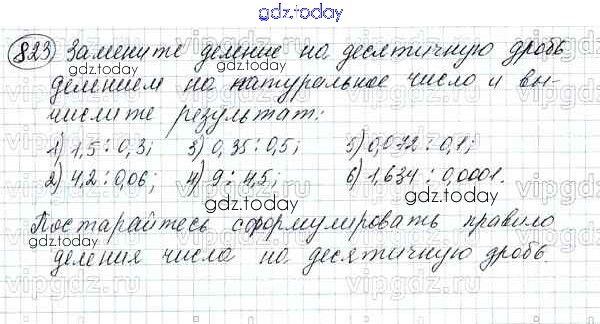 gdz.today
823 Замените деление на десятичную дробь
делением на натуральное число и вы-
числите результат:
1) 1,5 : 0,3; 3) 0,35 : 0,5; 5) 0,072 : 0,1;
2) 4,2 : 0,06; 4) 9 : 4,5; 6) 1,634 : 0,0001.
Постарайтесь сформулировать правило
деления числа на десятичную дробь.